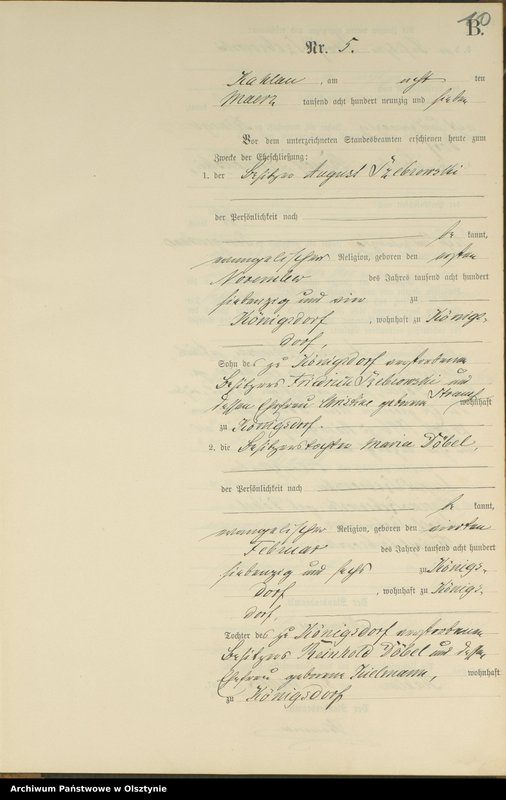 10
B.
Nr. 5.
Kahlau, am acht ten
Maerz tausend acht hundert neunzig und sieben
Vor dem unterzeichneten Standesbeamten erschienen heute zum
Zwecke der Eheschließung:
1. der Besitzer August Szebrowski
der Persönlichkeit nach
be kannt,
evangelischer Religion, geboren den ersten
November des Jahres tausend acht hundert
siebenzig und ein zu
Königsdorf, wohnhaft zu Königs-
dorf,
Sohn des zu Königsdorf verstorbenen
Besitzers Friedrich Szebrowski und
dessen Ehefrau Christine geborene wohnhaft
zu Königsdorf.
2. die Besitzerstochter Maria Döbel,
der Persönlichkeit nach
be kannt,
evangelischer Religion, geboren den vierten
Februar des Jahres tausend acht hundert
siebenzig und sechs zu Königs-
dorf, wohnhaft zu Königs-
dorf,
Tochter des zu Königsdorf verstorbenen
Besitzers Reinhold Döbel und dessen
Ehefrau geborene Kielmann, wohnhaft
zu Königsdorf
Archiwum Państwowe w Olsztynie